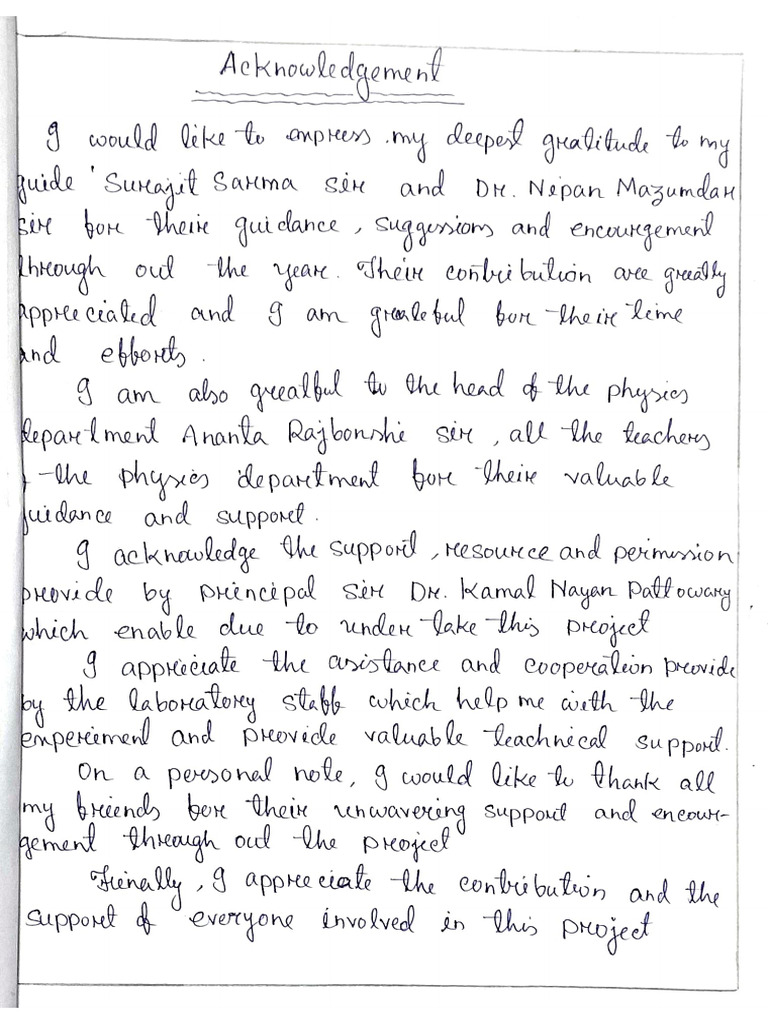 Acknowledgement
I would like to express my deepest gratitude to my
guide 'Surajit Sarma sir and Dr. Nipan Mazumdar
sir for their guidance, suggessions and encourgement
through out the year. Their contribution are greatly
appreciated and I am grateful for their time
and efforts.
I am also greatful to the head of the physics
department Ananta Rajbonshi sir, all the teachers
of the physics department for their valuable
guidance and support.
I acknowledge the support, resource and permission
provide by principal sir Dr. Kamal Nayan Pattowary
which enable due to under take this project
I appreciate the asistance and cooperation provide
by the laboratory staff which help me with the
experiment and provide valuable teachnical support.
On a personal note, I would like to thank all
my friends for their unwavering support and encour-
gement through out the project
Finally, I appreciate the contribution and the
support of everyone involved in this project